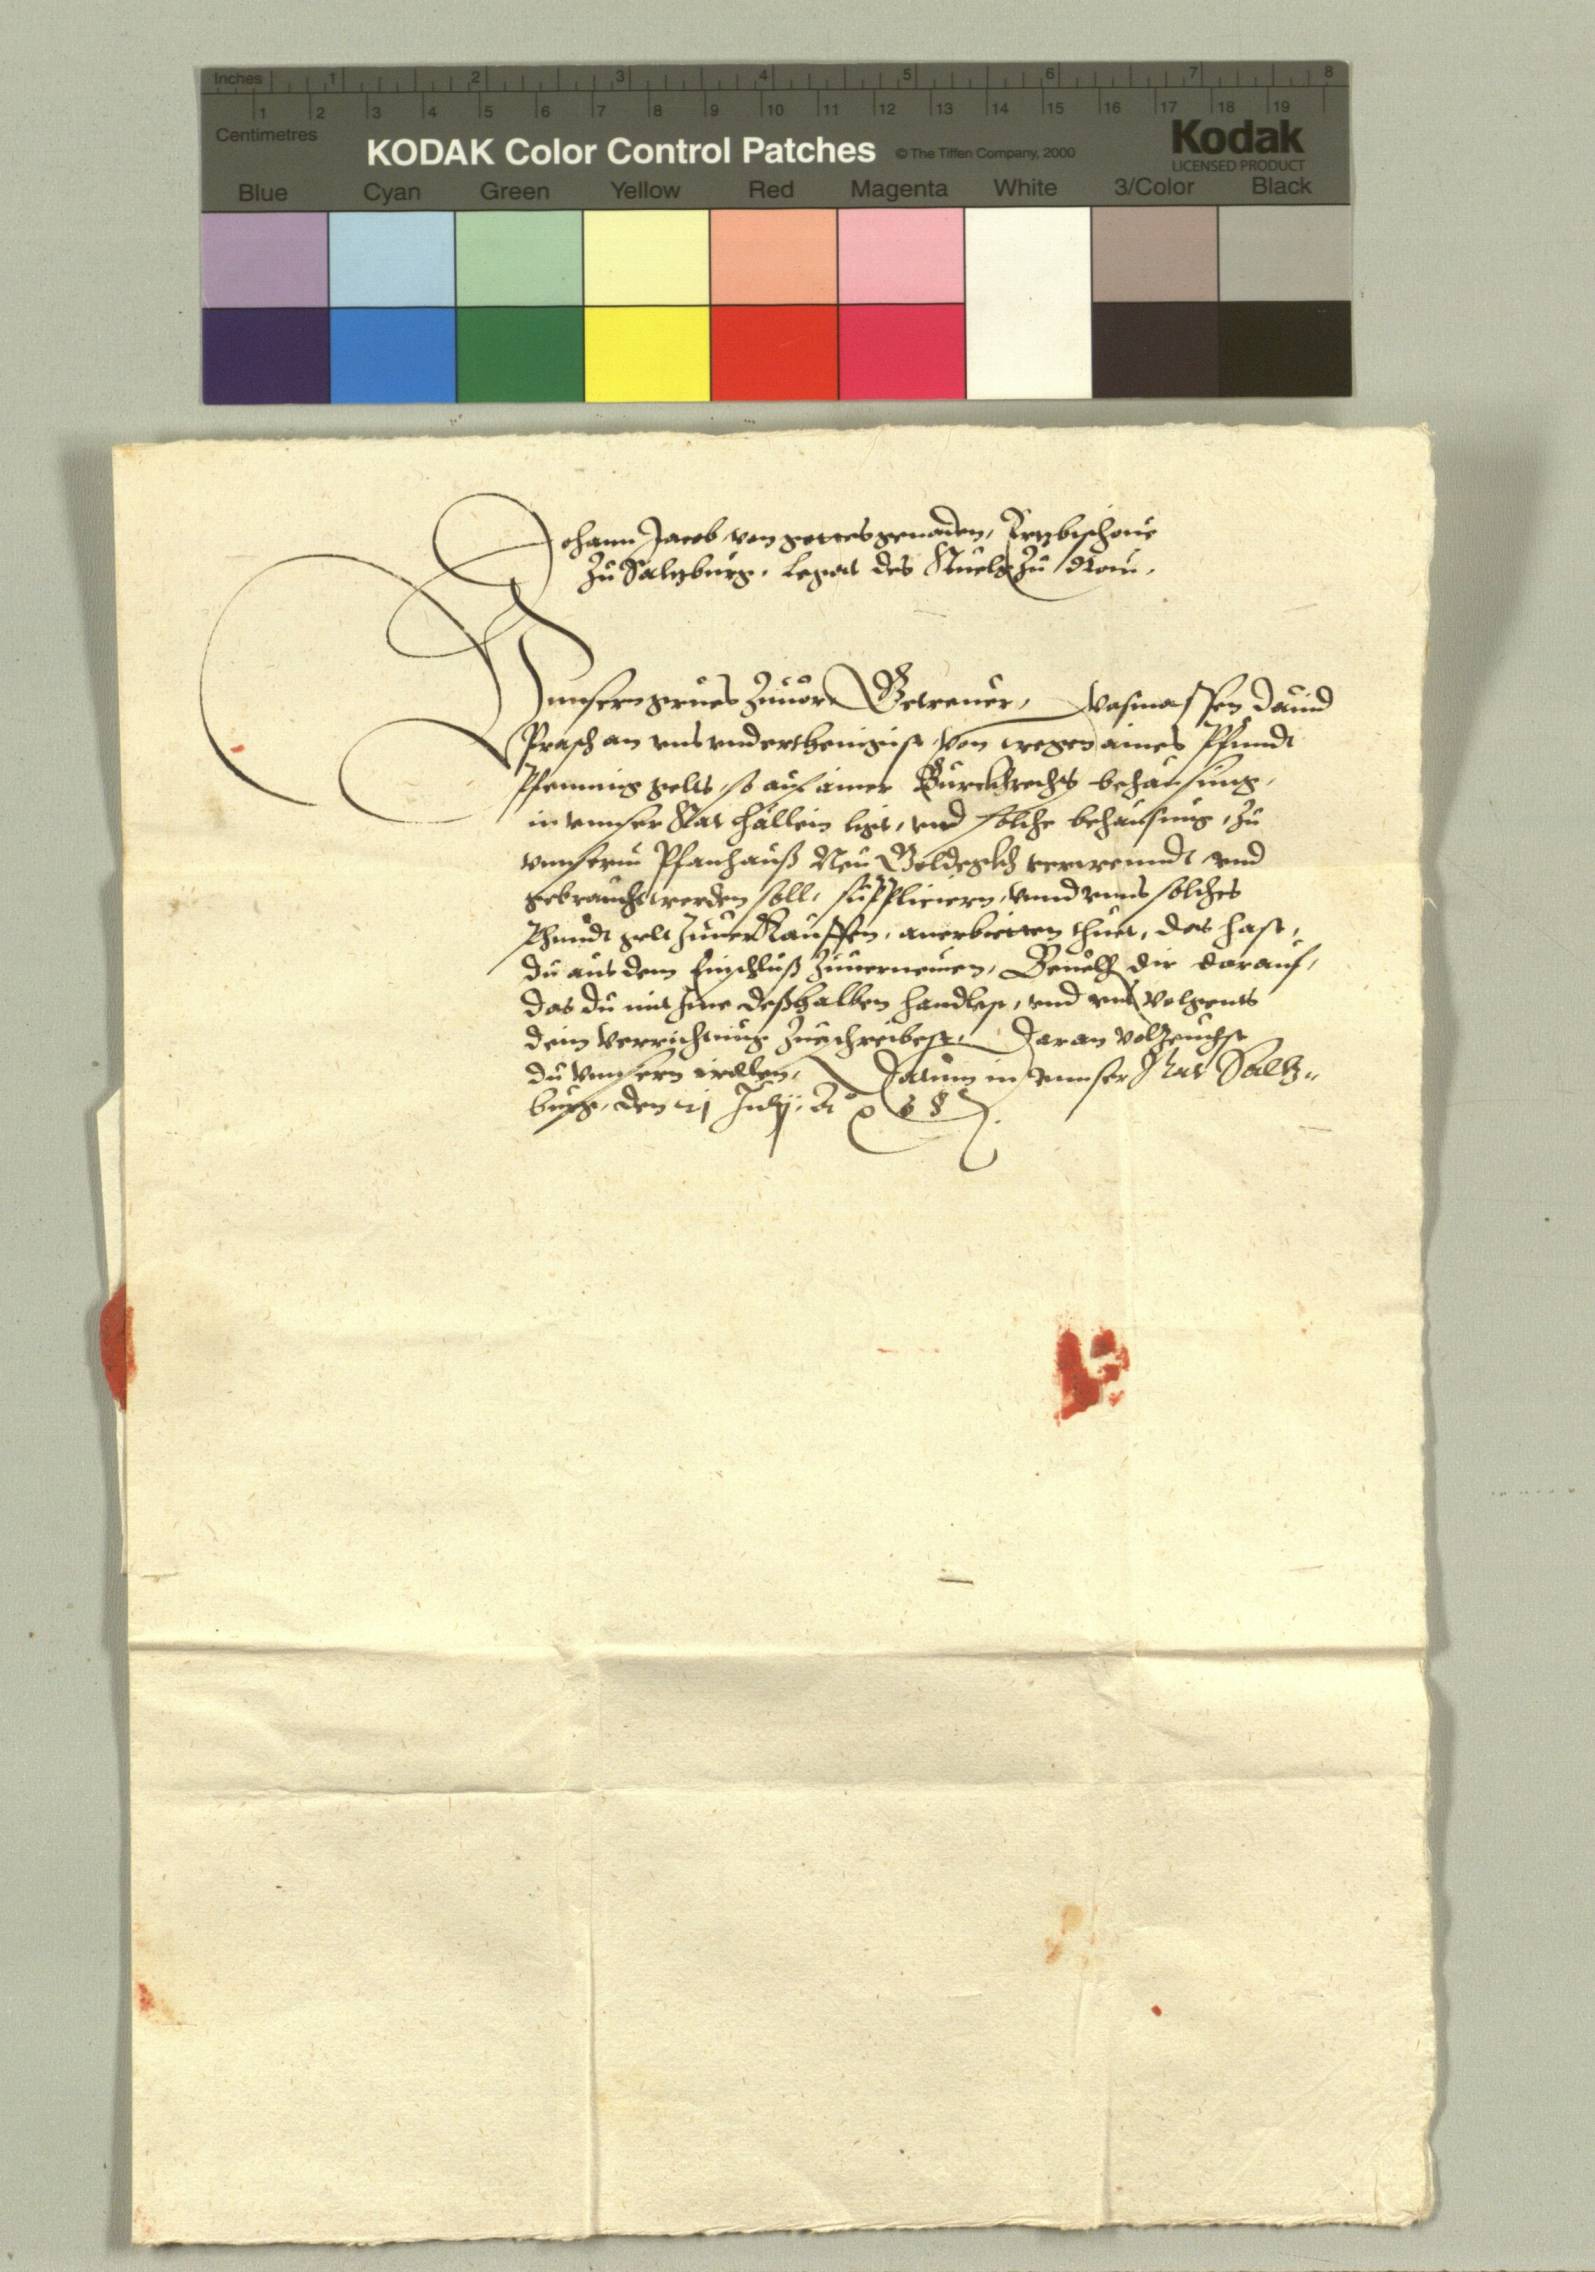 Inches 1 2 3 4 5 6 7 8
1 2 3 4 5 6 7 8 9 10 11 12 13 14 15 16 17 18 19
Centimetres
KODAK Color Control Patches © The Tiffen Company, 2000 Kodak
LICENSED PRODUCT
Blue Cyan Green Yellow Red Magenta White 3/Color Black
Johann Jacob von gottes genaden, Ertzbischove
zu Saltzburg, Legat des Stuels zu Rom.
Unnsern grues zuvor Getreuer, Wasmassen David
Prasch an uns underthenigist von wegen aines Pfundt
Pfenning gelts, so auf ainer Burckhrechts behausung,
in unnser Stat Hällein ligt, und solche behausung, zu
unnserm Pfanhauß Neu Goldegkh verwenndt und
gebraucht werden soll, suppliciern, unnd unns solches
Phundt gelt zuverkauffen, anerbietten thuet, das hast,
du aus dem Einschluß zuvernemen, Bevelh dir darauf,
das du mit Ime deßhalben handlest, und uns volgents
dein verrichtung zueschreibest, Daran volzeuchst
du unnsern willen, Datum in unnser Stat Saltz„
burg, den 21 July, Ao